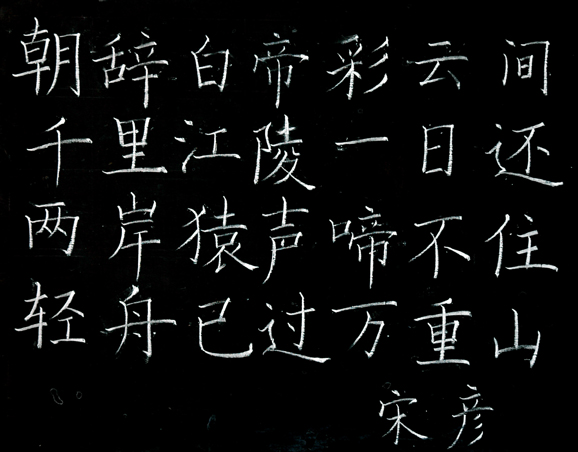 朝辞白帝彩云间
千里江陵一日还
两岸猿声啼不住
轻舟已过万重山
宋彦